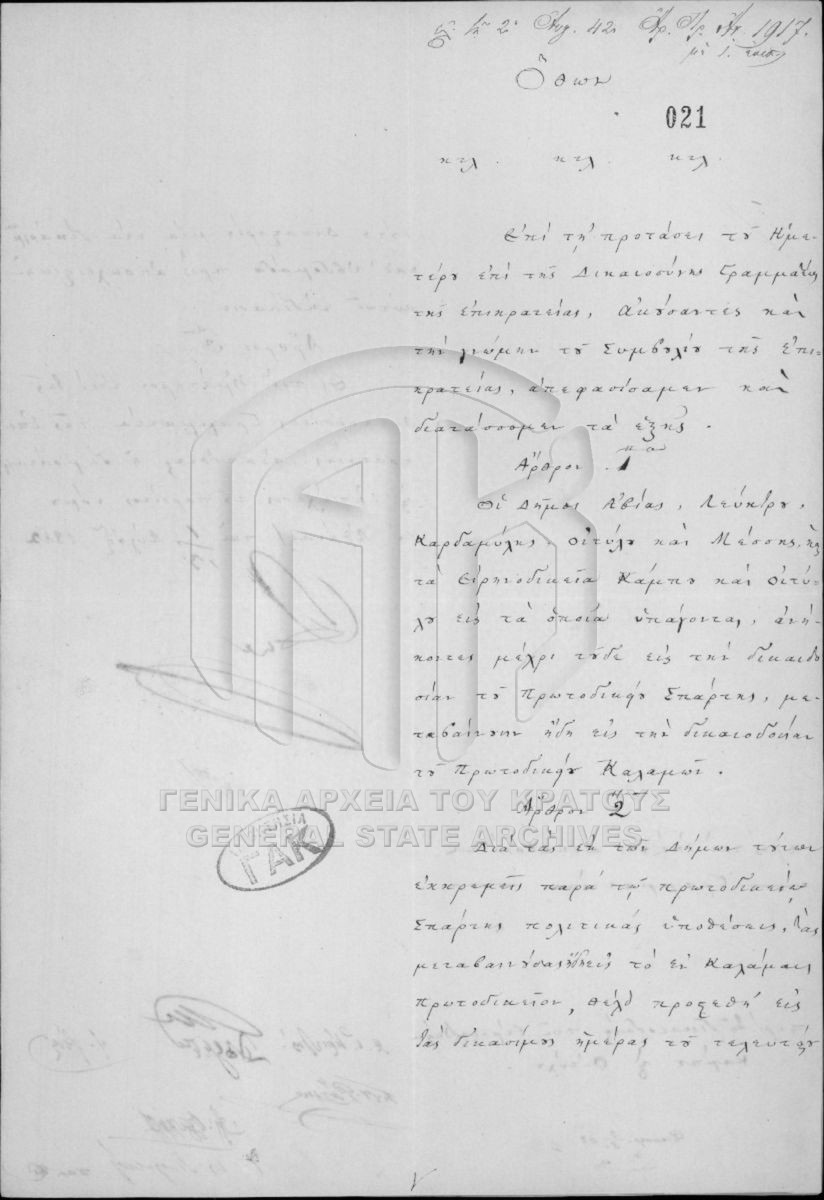 2 Αυγ. 42 Ἀρ. Πρ. 1917.
Ὄθων
021
κτλ. κτλ. κτλ.
Ἐπὶ τῇ προτάσει τοῦ Ἡμε-
τέρου ἐπὶ τῆς Δικαιοσύνης Γραμματέως
τῆς ἐπικρατείας, ἀκούσαντες καὶ
τὴν γνώμην τοῦ Συμβουλίου τῆς ἐπι-
κρατείας, ἀπεφασίσαμεν καὶ
διατάσσομεν τὰ ἑξῆς.
Ἄρθρον 1
Οἱ Δῆμοι Ἀβίας, Λεύκτρου,
Καρδαμύλης, Οἰτύλου καὶ Μέσσης,
τὰ Εἰρηνοδικεῖα Κάμπου καὶ Οἰτύ-
λου εἰς τὰ ὁποῖα ὑπάγονται, ἀνή-
κοντες μέχρι τοῦδε εἰς τὴν δικαιοδο
σίαν τοῦ Πρωτοδικείου Σπάρτης, με-
ταβαίνουν ἤδη εἰς τὴν δικαιοδοσίαν
τοῦ Πρωτοδικείου Καλαμῶν.
Ἄρθρον 2
Διὰ τὰς ἐκ τῶν Δήμων τούτων
ἐκκρεμεῖς παρὰ τῷ πρωτοδικείῳ
Σπάρτης πολιτικὰς ὑποθέσεις, τὰς
μεταβαινούσας ἤδη εἰς τὸ ἐν Καλάμαις
πρωτοδικεῖον, θέλει προστεθῆ εἰς
τὰς δικασίμους ἡμέρας τοῦ τελευταίου
ΓΕΝΙΚΑ ΑΡΧΕΙΑ ΤΟΥ ΚΡΑΤΟΥΣ
GENERAL STATE ARCHIVES
ΓΑΚ